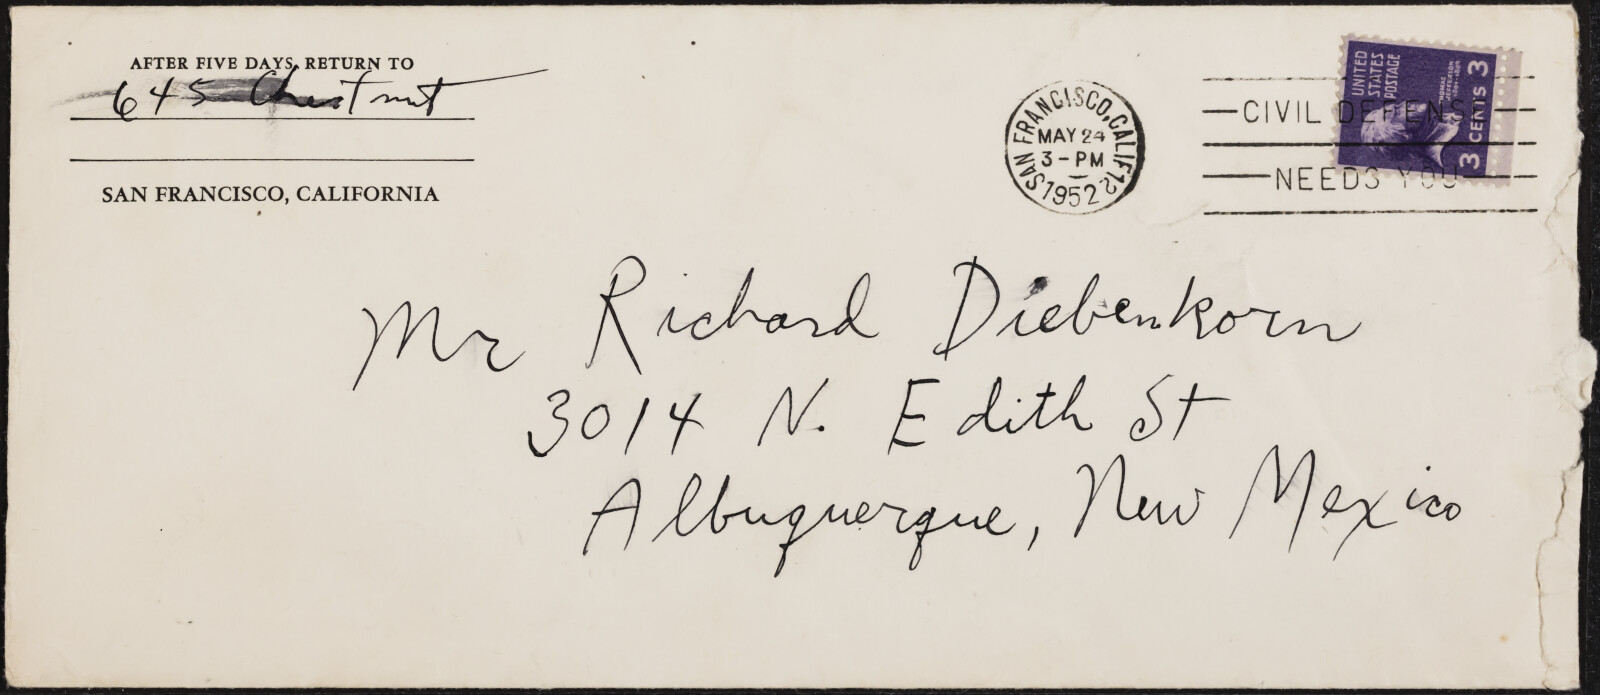 AFTER FIVE DAYS, RETURN TO
645 Chestnut
SAN FRANCISCO, CALIFORNIA
SAN FRANCISCO, CALIF. 12
MAY 24
3-PM
1952
CIVIL DEFENSE
NEEDS YOU
UNITED
STATES
POSTAGE
THOMAS
JEFFERSON
3 CENTS 3
Mr Richard Diebenkorn
3014 N. Edith St
Albuquerque, New Mexico